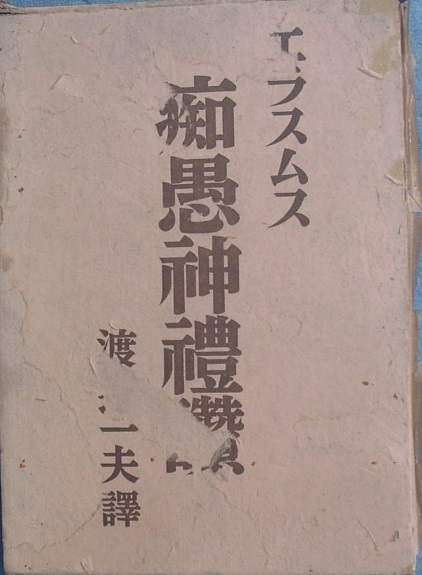 エラスムス
痴愚神禮讚
渡 一夫譯